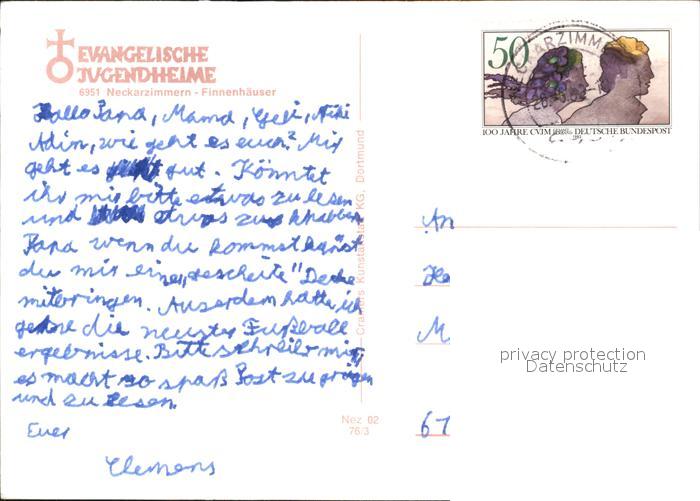 EVANGELISCHE
JUGENDHEIME
6951 Neckarzimmern - Finnenhäuser
Hallo Papa, Mama, Geli,
wie geht es euch? Mir
geht es gut. Könntet
ihr mir bitte etwas zu lesen
und etwas zu
Papa wenn du kommst kanst
du mir eine „gescheite" Decke
mitbringen. Auserdem hätte ich
gerne die neusten Fußball
ergebnisse. Bitte schreib mir,
es macht so spaß Post zu
und zu lesen.
Euer
Clemens
Cramers Kunstanstalt KG, Dortmund
Nez 02
76/3
50
100 JAHRE CVJM DEUTSCHE BUNDESPOST
An
M
67
privacy protection
Datenschutz